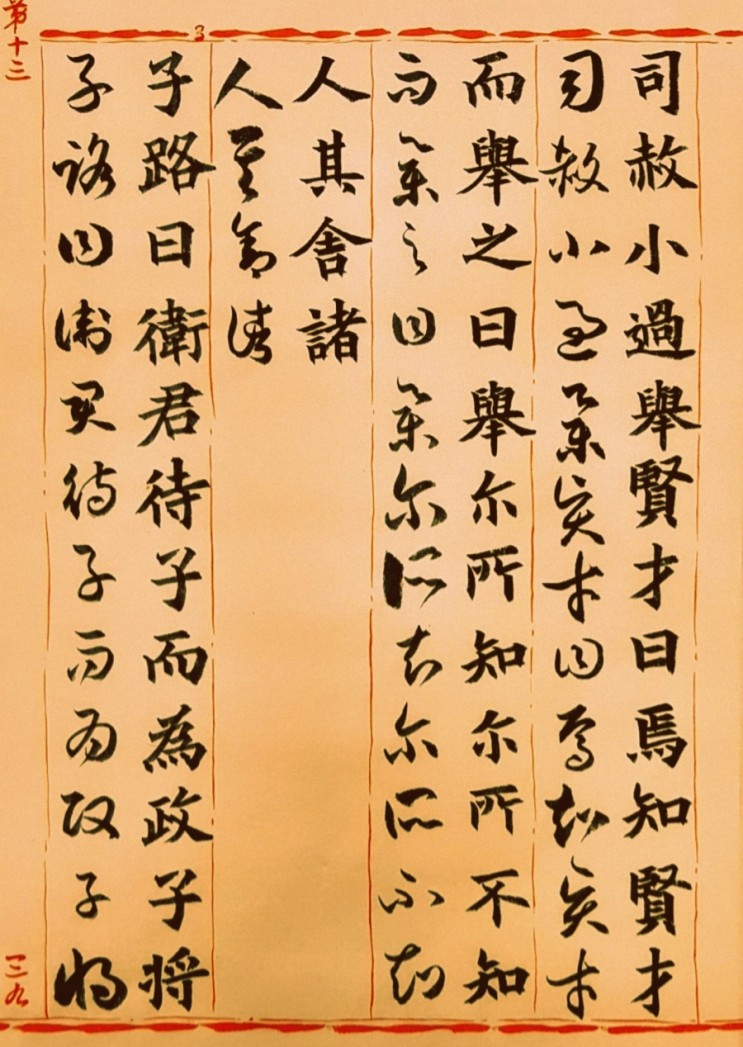 司赦小過舉賢才曰焉知賢才
司赦小過舉賢才曰焉知賢才
而舉之曰舉尓所知尓所不知
而舉之曰舉尓所知尓所不知
人其舍諸
人其舍諸
3
子路曰衛君待子而為政子将
子路曰衛君待子而為政子将
第十三
三九